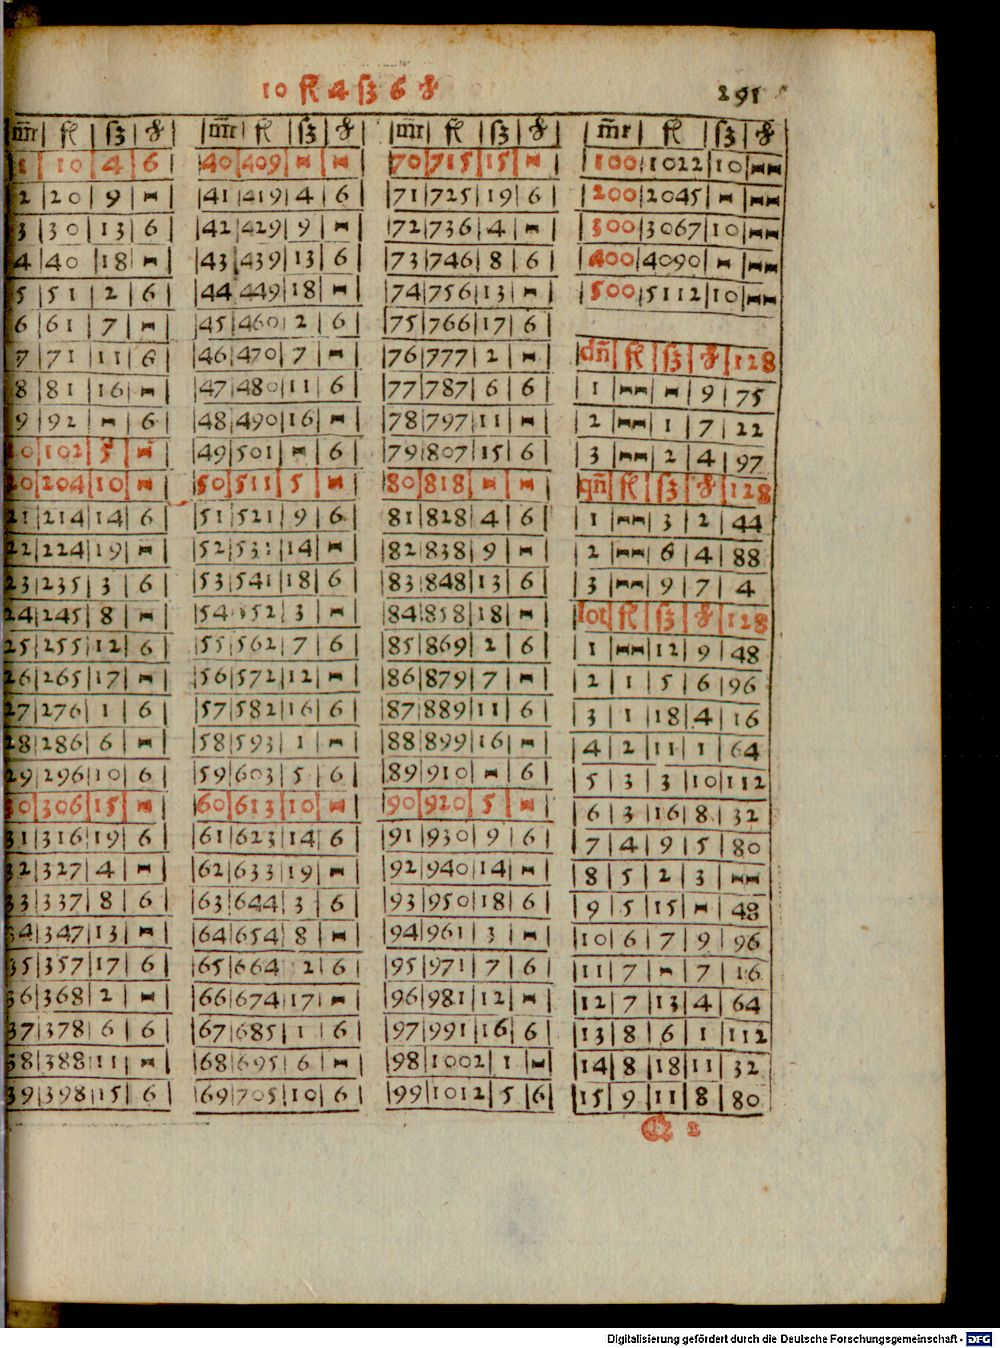 10 fl 4 ß 6 ₰
291
m̄r fl ß ₰
1 10 4 6
2 20 9 -
3 30 13 6
4 40 18 -
5 51 2 6
6 61 7 -
7 71 11 6
8 81 16 -
9 92 - 6
10 102 5 -
20 204 10 -
21 214 14 6
22 224 19 -
23 235 3 6
24 245 8 -
25 255 12 6
26 265 17 -
27 276 1 6
28 286 6 -
29 296 10 6
30 306 15 -
31 316 19 6
32 327 4 -
33 337 8 6
34 347 13 -
35 357 17 6
36 368 2 -
37 378 6 6
38 388 11 -
39 398 15 6
m̄r fl ß ₰
40 409 - -
41 419 4 6
42 429 9 -
43 439 13 6
44 449 18 -
45 460 2 6
46 470 7 -
47 480 11 6
48 490 16 -
49 501 - 6
50 511 5 -
51 521 9 6
52 531 14 -
53 541 18 6
54 552 3 -
55 562 7 6
56 572 12 -
57 582 16 6
58 593 1 -
59 603 5 6
60 613 10 -
61 623 14 6
62 633 19 -
63 644 3 6
64 654 8 -
65 664 2 6
66 674 17 -
67 685 1 6
68 695 6 -
69 705 10 6
m̄r fl ß ₰
70 715 15 -
71 725 19 6
72 736 4 -
73 746 8 6
74 756 13 -
75 766 17 6
76 777 2 -
77 787 6 6
78 797 11 -
79 807 15 6
80 818 - -
81 828 4 6
82 838 9 -
83 848 13 6
84 858 18 -
85 869 2 6
86 879 7 -
87 889 11 6
88 899 16 -
89 910 - 6
90 920 5 -
91 930 9 6
92 940 14 -
93 950 18 6
94 961 3 -
95 971 7 6
96 981 12 -
97 991 16 6
98 1002 1 -
99 1012 5 6
m̄r fl ß ₰
100 1022 10 --
200 2045 - --
300 3067 10 --
400 4090 - --
500 5112 10 --
dn̄ fl ß ₰ 128
1 -- - 9 75
2 -- 1 7 22
3 -- 2 4 97
qn̄ fl ß ₰ 128
1 -- 3 2 44
2 -- 6 4 88
3 -- 9 7 4
lot fl ß ₰ 128
1 -- 12 9 48
2 1 5 6 96
3 1 18 4 16
4 2 11 1 64
5 3 3 10 112
6 3 16 8 32
7 4 9 5 80
8 5 2 3 --
9 5 15 - 48
10 6 7 9 96
11 7 - 7 16
12 7 13 4 64
13 8 6 1 112
14 8 18 11 32
15 9 11 8 80
2
Digitalisierung gefördert durch die Deutsche Forschungsgemeinschaft - DFG